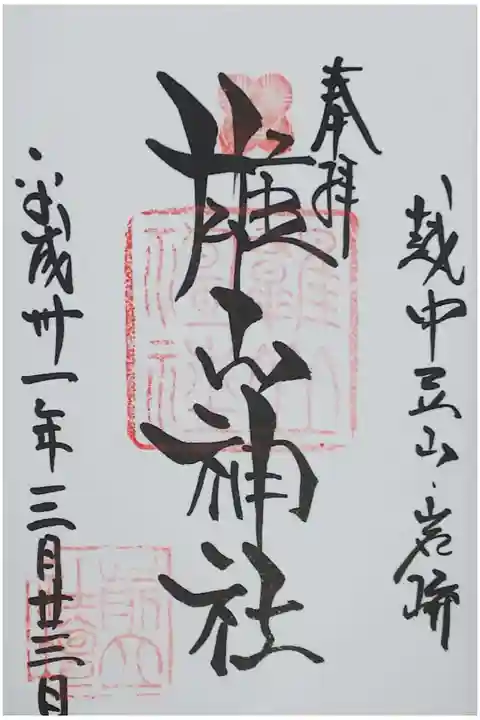 越中立山・岩峅
奉拝
雄山神社
平成卅一年三月廿三日